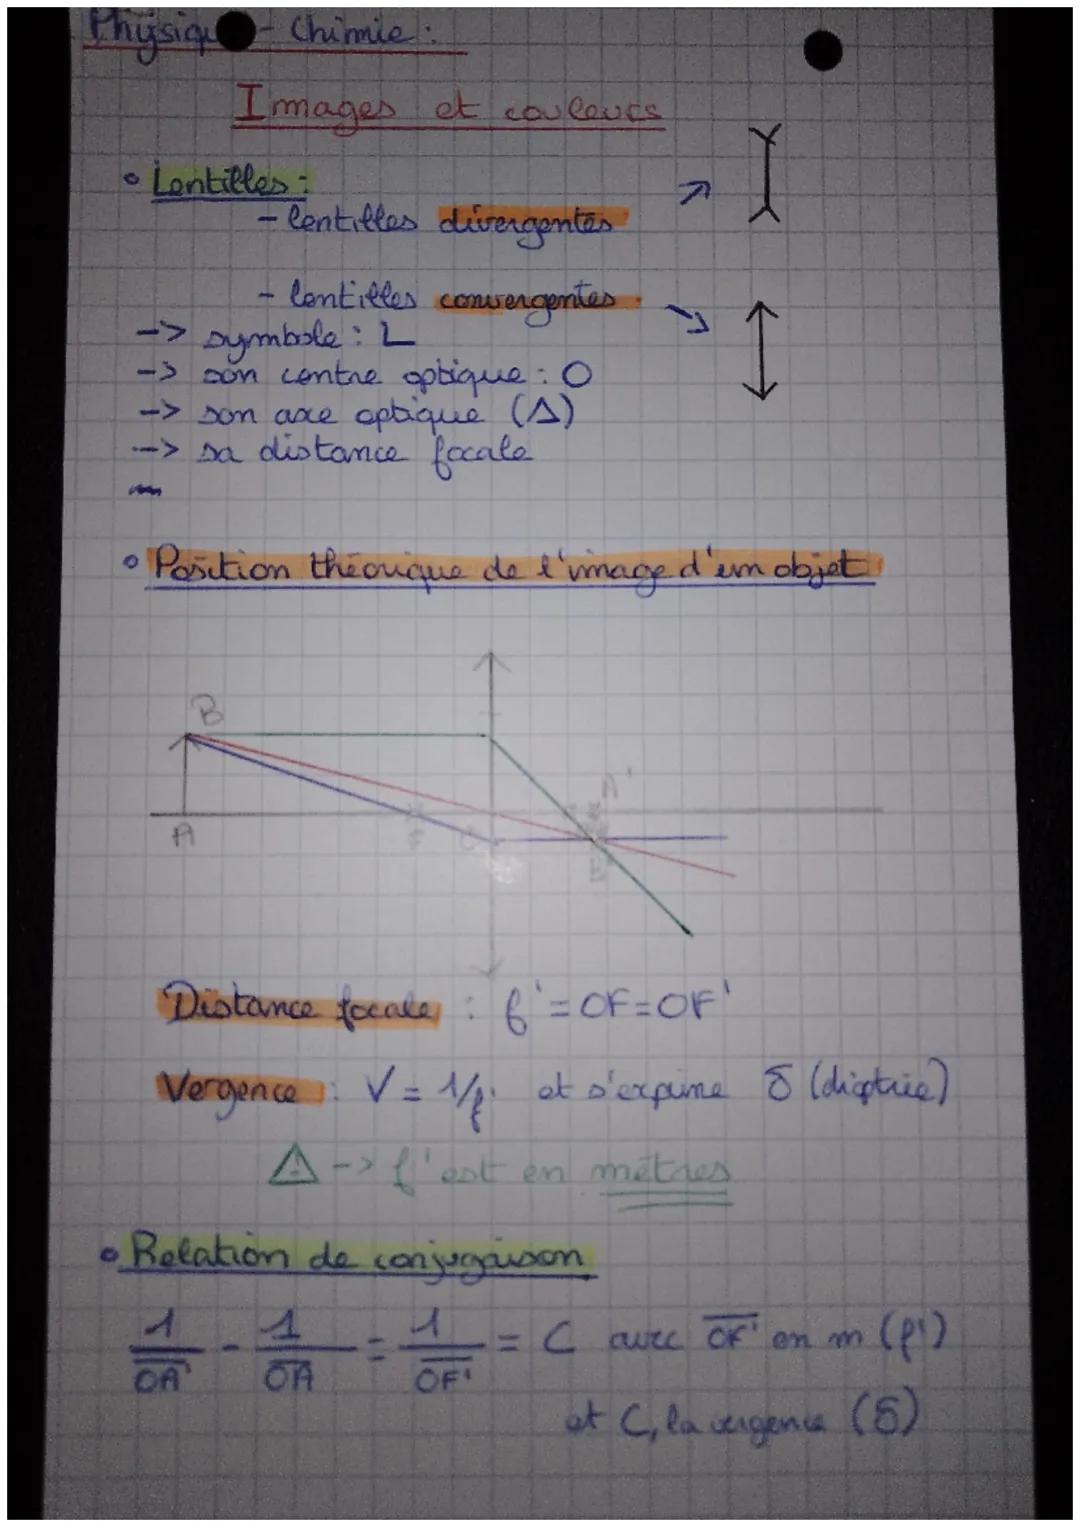 Physique - Chimie :
Images et couleurs
• Lentilles :
- lentilles divergentes
- lentilles convergentes
-> symbole : L
-> son centre optique : O
-> son axe optique (Δ)
-> sa distance focale
• Position théorique de l'image d'un objet
B
A'
A
F
O
Distance focale : f' = OF = OF'
Vergence : V = 1/f' et s'exprime δ (dioptrie)
⚠ -> f' est en mètres
• Relation de conjugaison
1/OA' - 1/OA = 1/OF' = C avec OF' en m (f')
et C, la vergence (δ)